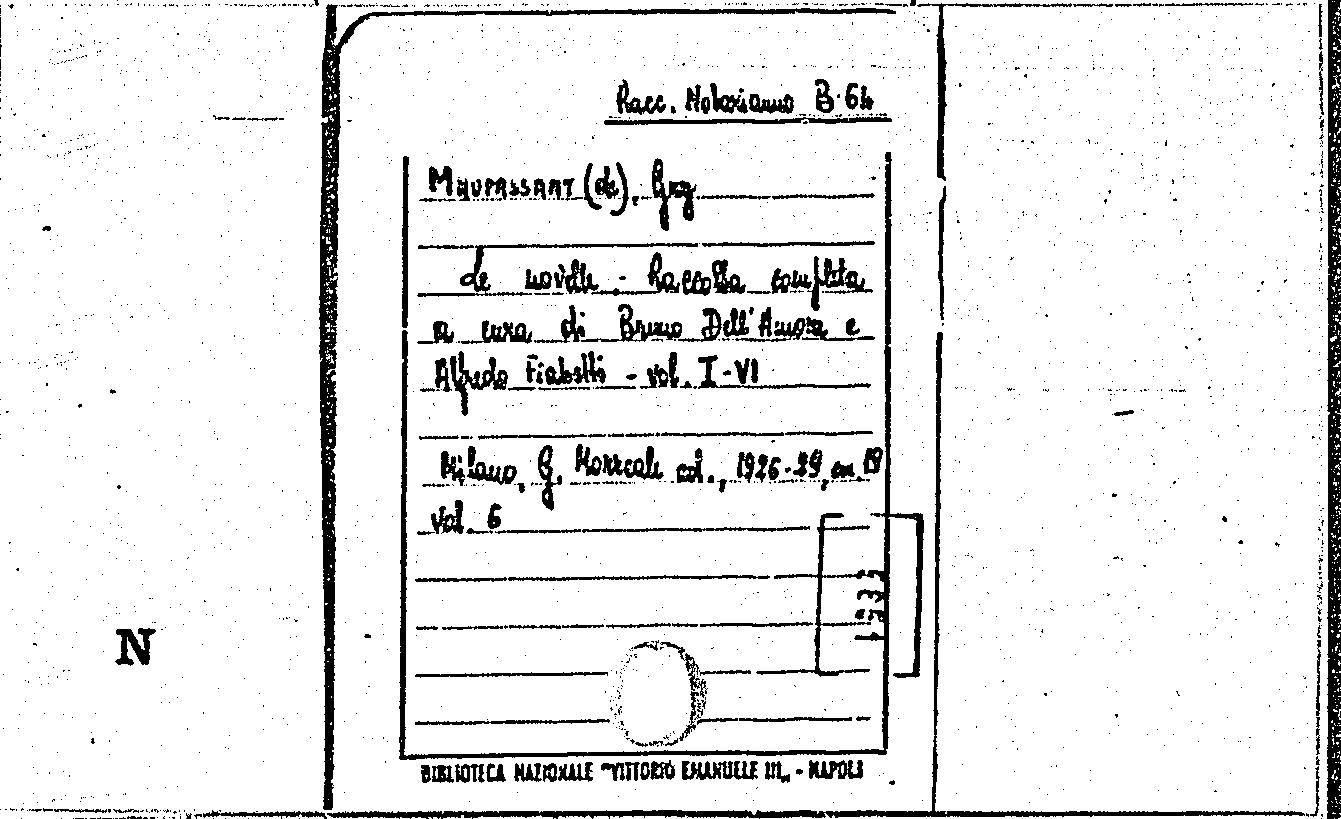 Racc. Notarianno B 64
MAUPASSANT (de). Guy
Le novelle - Raccolta completa
a cura di Bruno Dell'Amore e
Alfredo Fabietti - vol. I-VI
Milano, G. Morreale ed., 1926-29, cm. 19
vol. 6
N
BIBLIOTECA NAZIONALE "VITTORIO EMANUELE III„ - NAPOLI